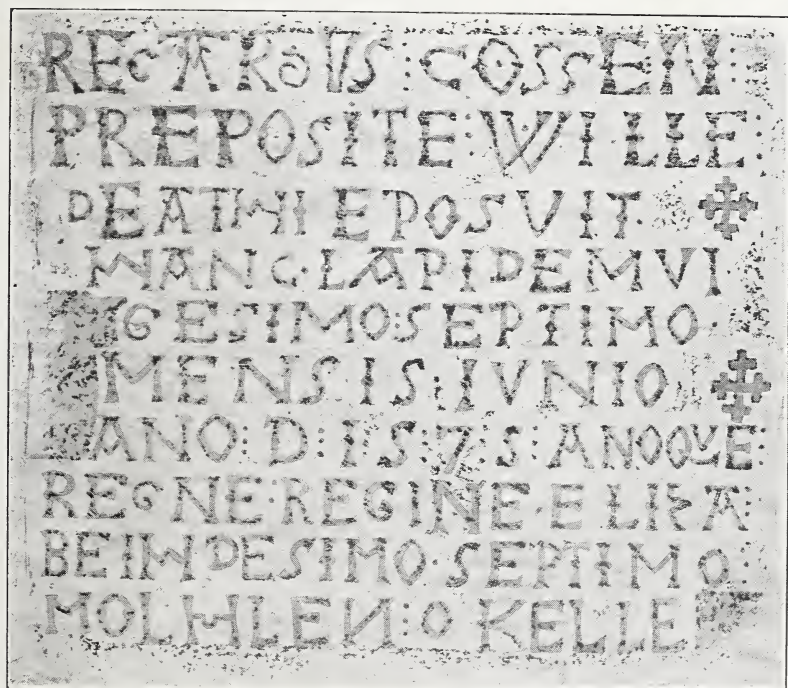 RECARDVS : COSSEN :
PREPOSITE : WILLE :
DEATHI E POSVIT
HANC · LAPIDEM VI
GESIMO : SEPTIMO ·
MENSIS : IVNIO
ANO : D : 1 5 : 7 : 5 : ANOQVE :
REGNE · REGINE · ELIZA
BE IHDESIMO · SEPTIMO
MOLHLEN : O KELLE